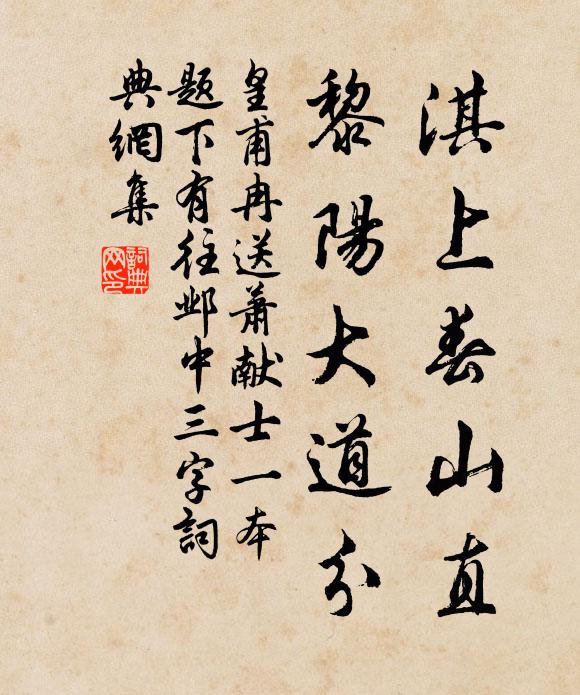 淇上春山直
黎陽大道分
皇甫冉送蕭献士一本
题下有往邺中三字詞
典網集
詞典网印